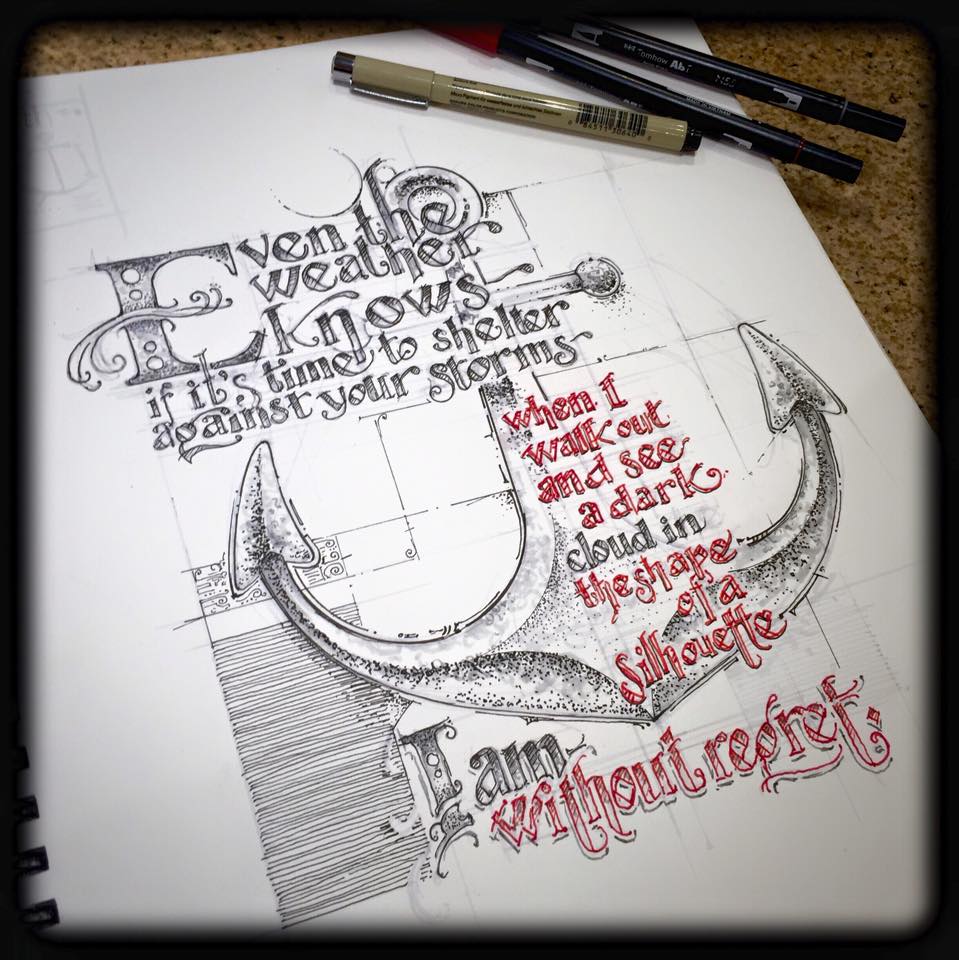 Even the
weather
knows
if it's time to shelter
against your storms
when I
walk out
and see
a dark
cloud in
the shape
of a
silhouette
I am
without regret.
Tombow ABT N50
0 84511 30640 6